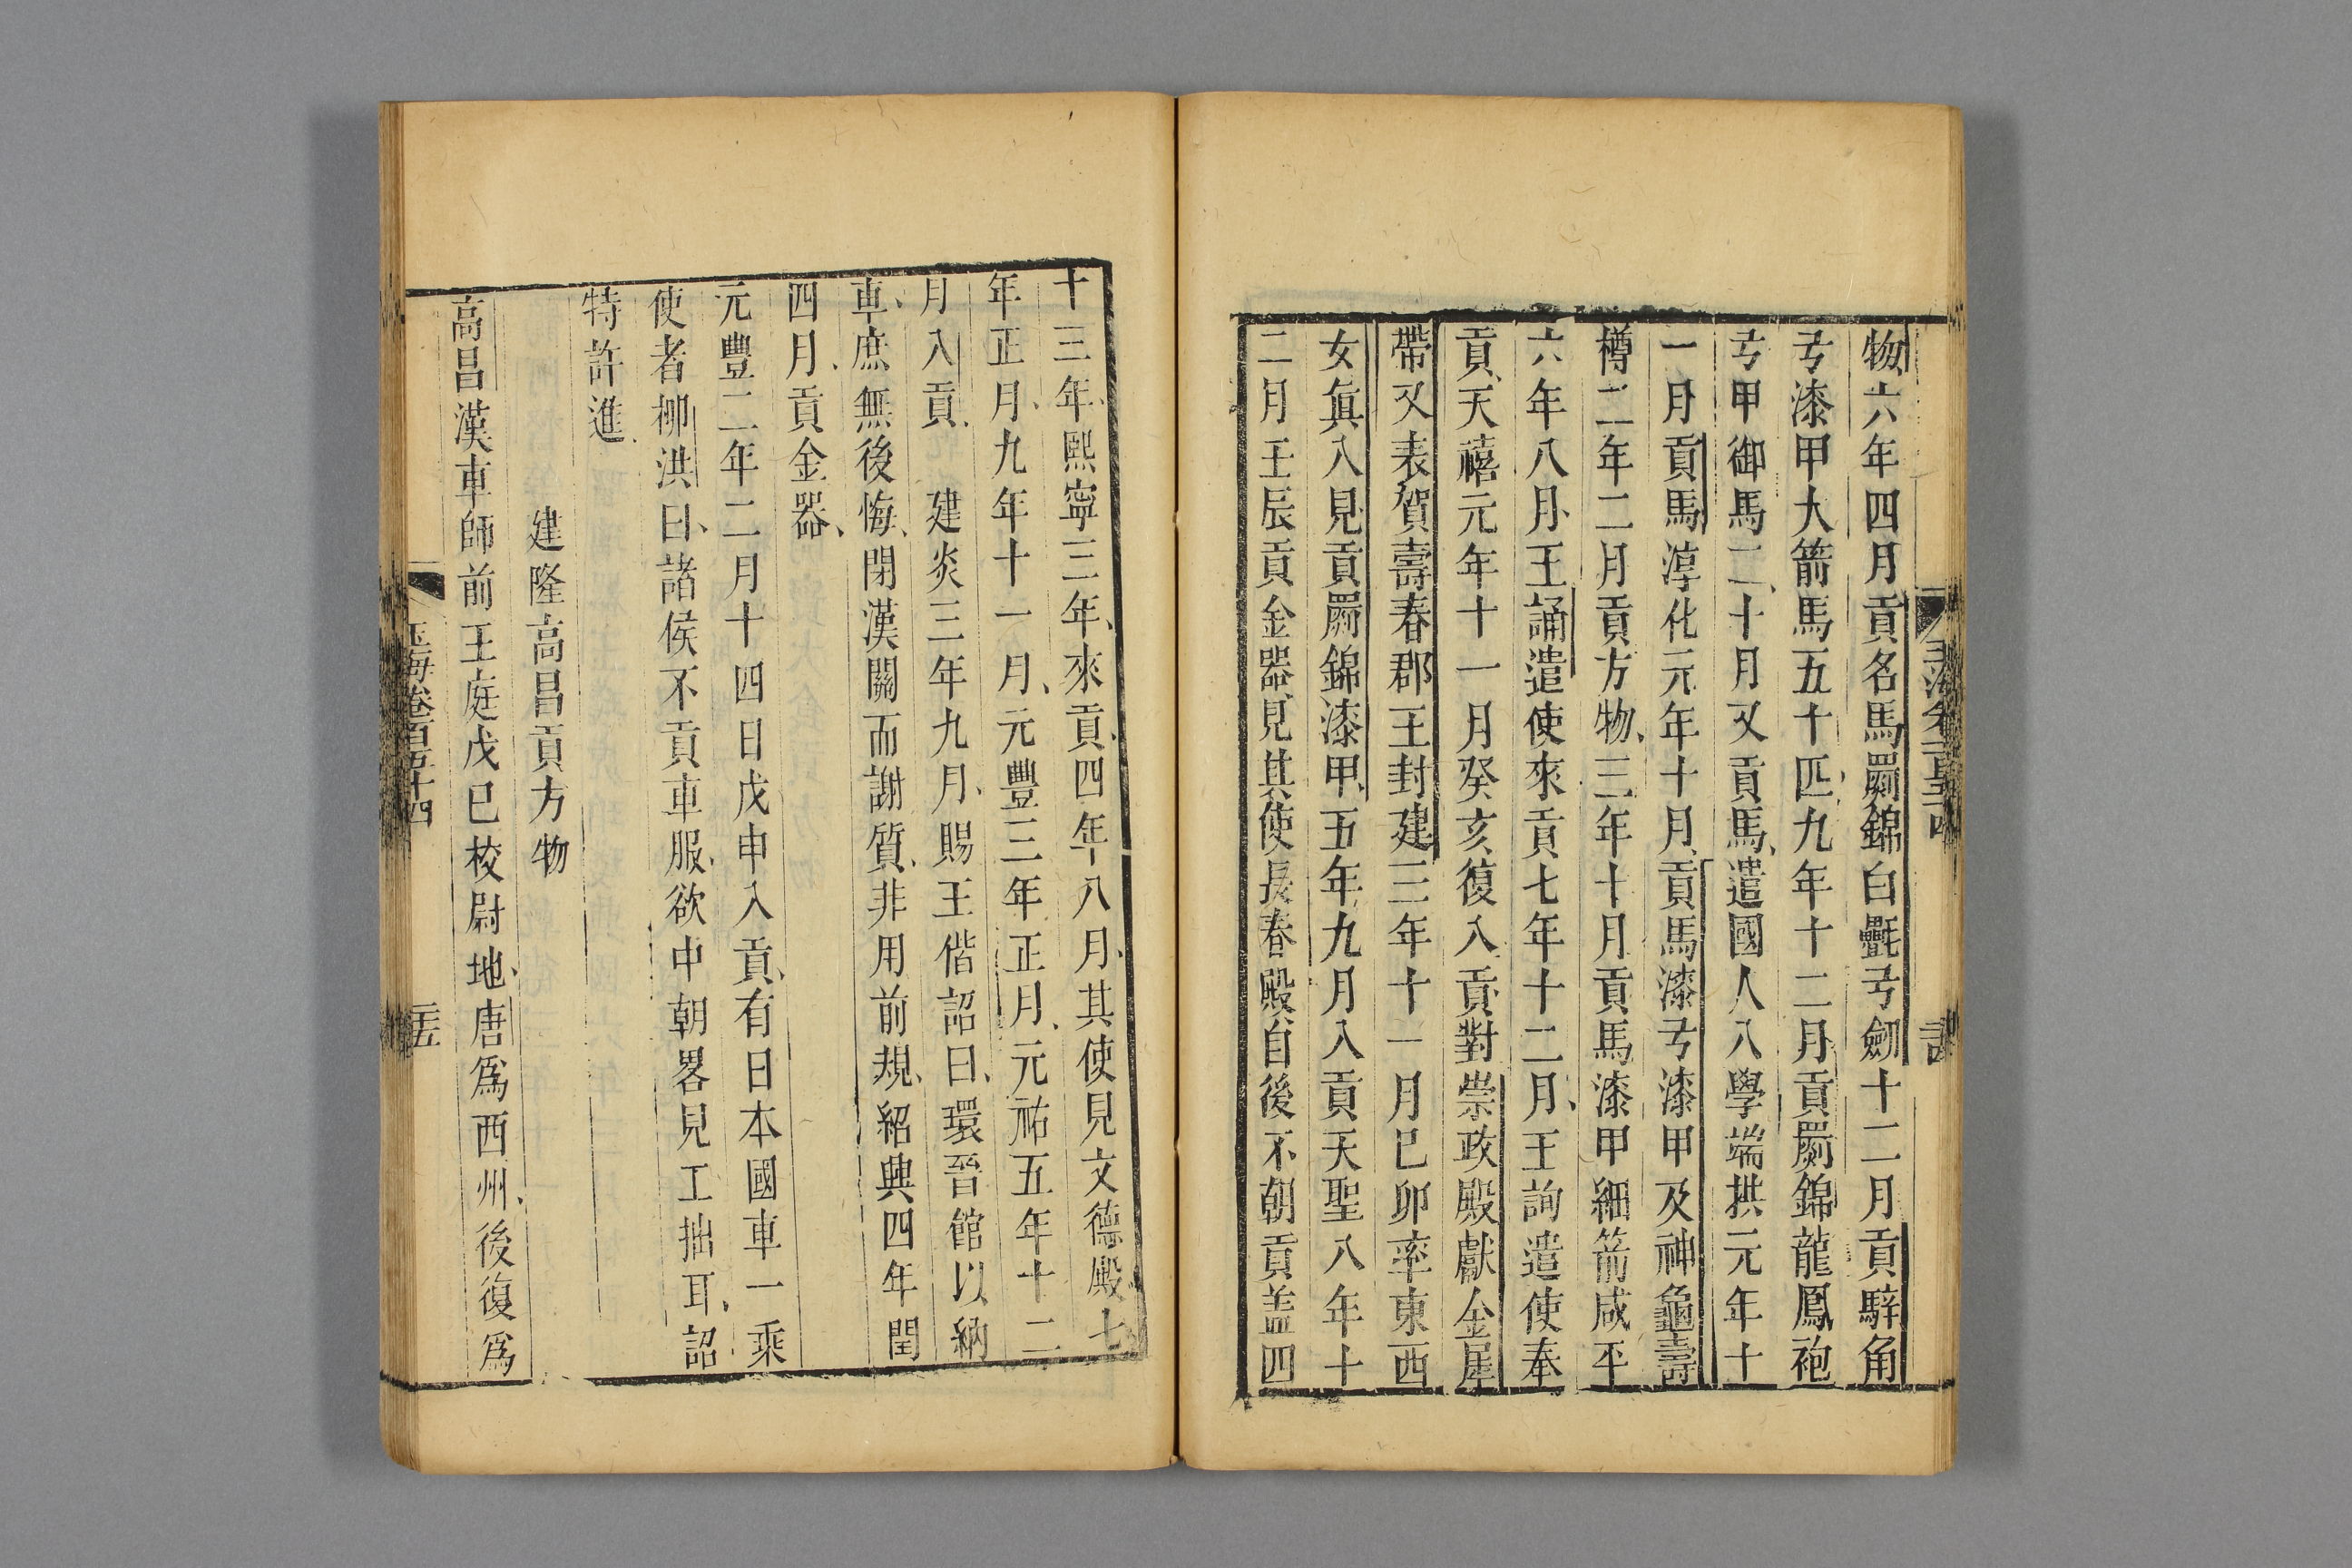 物六年四月貢名馬罽錦白㲲弓劒十二月貢騂角
弓漆甲大箭馬五十匹九年十二月貢罽錦龍鳳袍
弓甲御馬二十月又貢馬遣國人入學端拱元年十
一月貢馬淳化元年十月貢馬漆弓漆甲及神龜壽
樽二年二月貢方物三年十月貢馬漆甲細箭咸平
六年八月王誦遣使來貢七年十二月王詢遣使奉
貢天禧元年十一月癸亥復入貢對崇政殿獻金犀
帶又表賀壽春郡王封建三年十一月巳卯率東西
女眞入見貢罽錦漆甲五年九月入貢天聖八年十
二月壬辰貢金器見其使長春殿自後不朝貢盖四
十三年熙寧三年來貢四年八月其使見文德殿七
年正月九年十一月元豐三年正月元祐五年十二
月入貢　建炎三年九月賜王偕詔曰環晉館以納
車庶無後悔閉漢關而謝質非用前規紹興四年閏
四月貢金器
元豐二年二月十四日戊申入貢有日本國車一乘
使者柳洪曰諸侯不貢車服欲中朝畧見工拙耳詔
特許進
建隆高昌貢方物
高昌漢車師前王庭戊巳校尉地唐爲西州後復爲
玉海卷百五十四
二十五